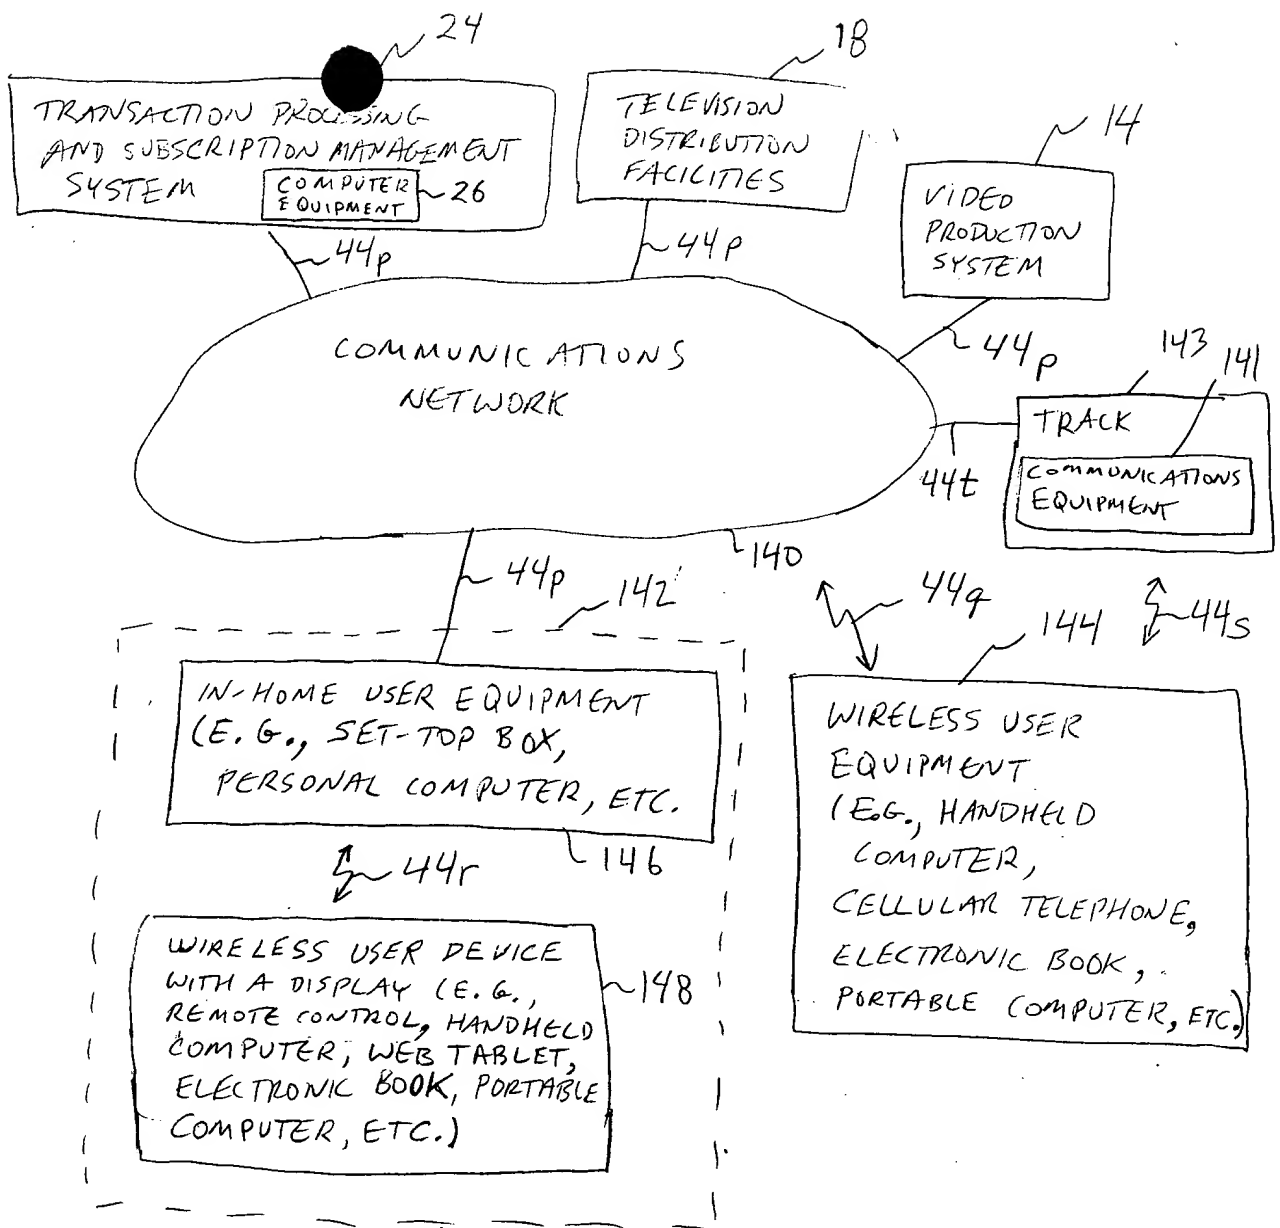 24
TRANSACTION PROCESSING
AND SUBSCRIPTION MANAGEMENT
SYSTEM
COMPUTER
EQUIPMENT
26
44p
18
TELEVISION
DISTRIBUTION
FACILITIES
44p
14
VIDEO
PRODUCTION
SYSTEM
44p
COMMUNICATIONS
NETWORK
140
143
141
TRACK
COMMUNICATIONS
EQUIPMENT
44t
44p
142
44q
144
44s
IN-HOME USER EQUIPMENT
(E.G., SET-TOP BOX,
PERSONAL COMPUTER, ETC.
146
44r
WIRELESS USER DEVICE
WITH A DISPLAY (E.G.,
REMOTE CONTROL, HANDHELD
COMPUTER, WEB TABLET,
ELECTRONIC BOOK, PORTABLE
COMPUTER, ETC.)
148
WIRELESS USER
EQUIPMENT
(E.G., HANDHELD
COMPUTER,
CELLULAR TELEPHONE,
ELECTRONIC BOOK,
PORTABLE COMPUTER, ETC.)